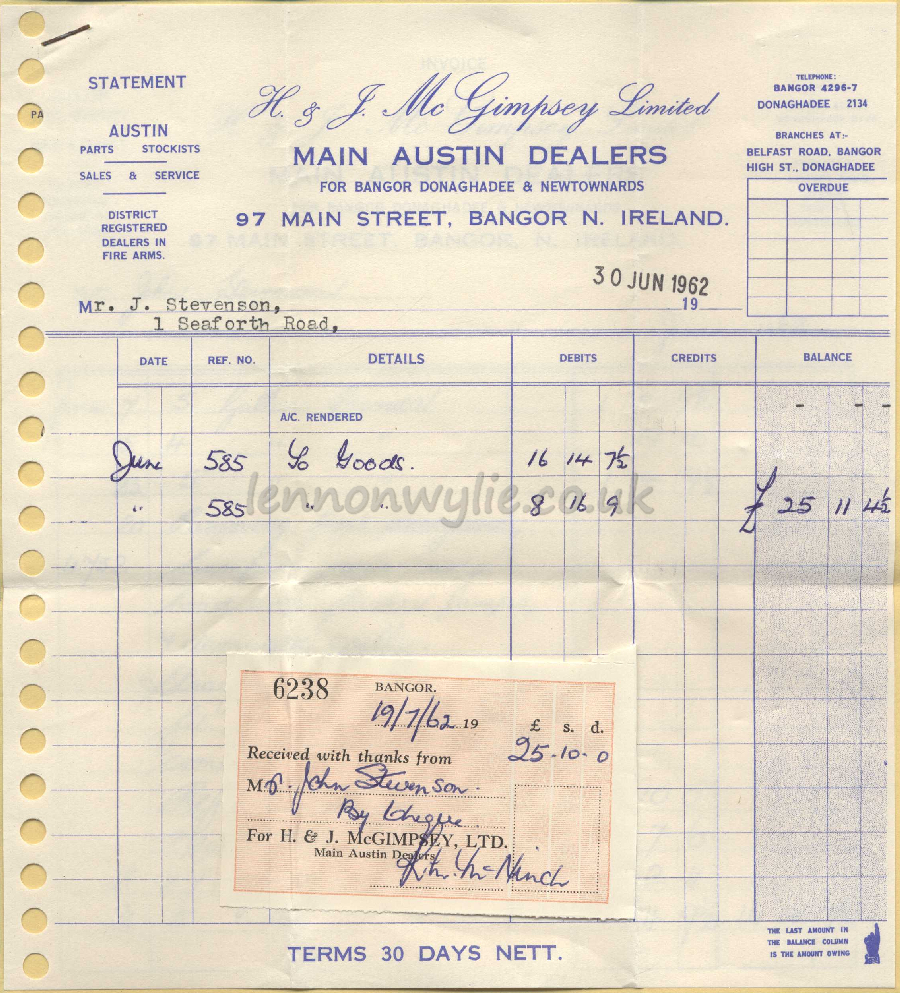 STATEMENT
AUSTIN
PARTS STOCKISTS
SALES & SERVICE
DISTRICT
REGISTERED
DEALERS IN
FIRE ARMS.
H. & J. Mc Gimpsey Limited
MAIN AUSTIN DEALERS
FOR BANGOR DONAGHADEE & NEWTOWNARDS
97 MAIN STREET, BANGOR N. IRELAND.
TELEPHONE:
BANGOR 4296-7
DONAGHADEE 2134
BRANCHES AT:-
BELFAST ROAD, BANGOR
HIGH ST., DONAGHADEE
OVERDUE
30 JUN 1962
19
Mr. J. Stevenson,
1 Seaforth Road,
DATE REF. NO. DETAILS DEBITS CREDITS BALANCE
A/C. RENDERED - - -
June 585 To Goods. 16 14 7½
" 585 " " 8 16 9 £ 25 11 4½
lennonwylie.co.uk
6238 BANGOR.
19/7/62 19 £ s. d.
Received with thanks from 25-10-0
Mr. John Stevenson.
By Cheque
For H. & J. McGIMPSEY, LTD.
Main Austin Dealers
THE LAST AMOUNT IN
THE BALANCE COLUMN
IS THE AMOUNT OWING
TERMS 30 DAYS NETT.